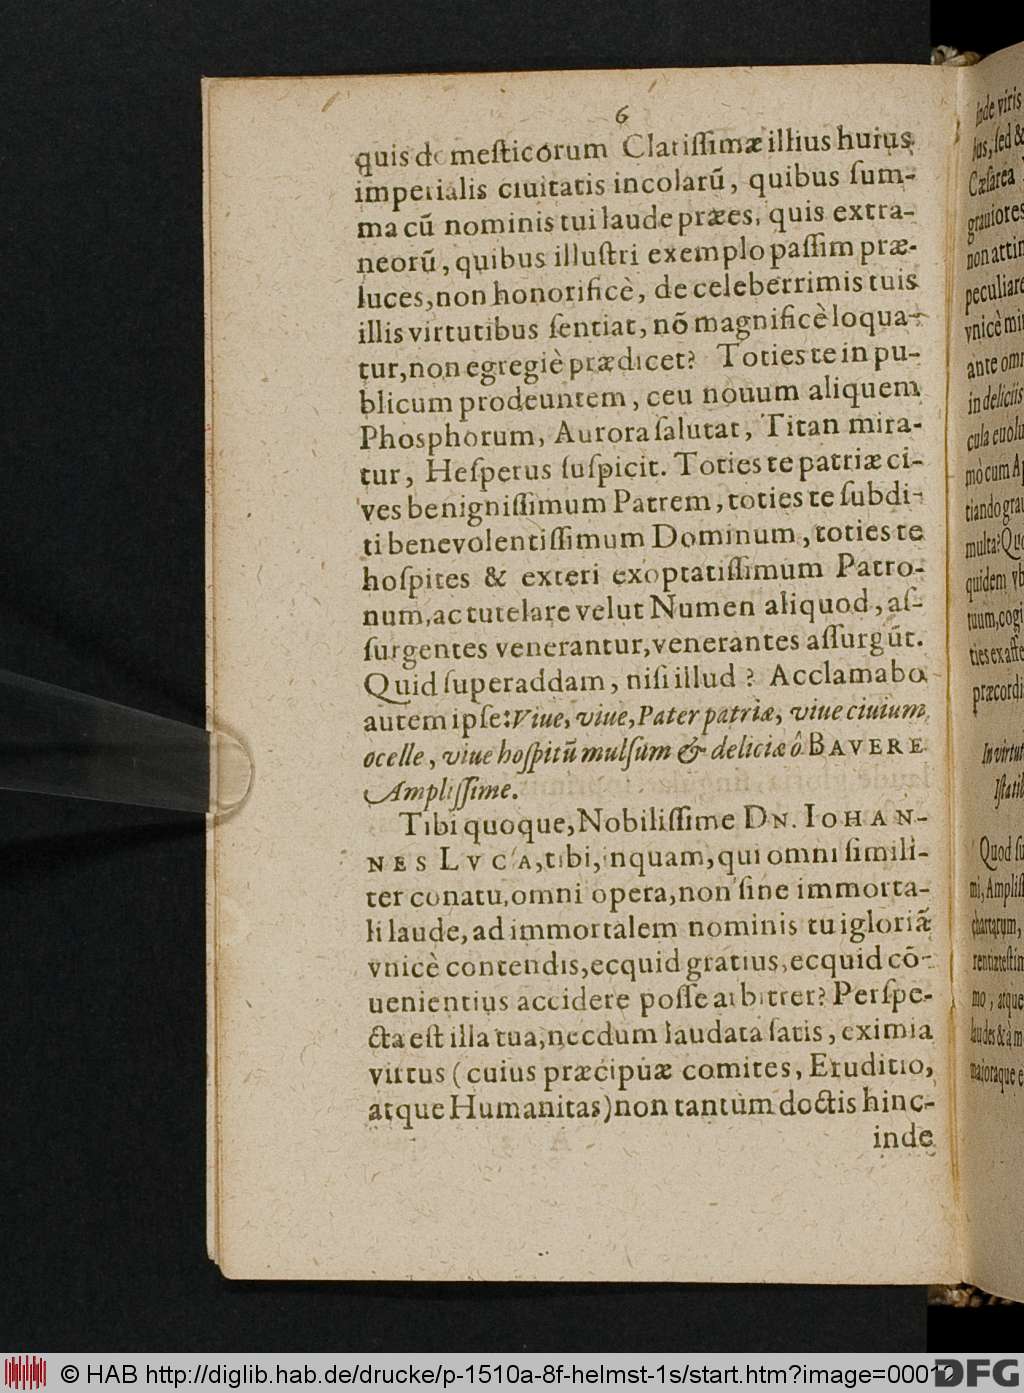 6
quis domesticorum Clarissimæ illius huius
imperialis ciuitatis incolarũ, quibus sum-
ma cũ nominis tui laude præes, quis extra-
neorũ, quibus illustri exemplo passim præ-
luces, non honorificè, de celeberrimis tuis
illis virtutibus sentiat, nõ magnificè loqua-
tur, non egregiè prædicet? Toties te in pu-
blicum prodeuntem, ceu nouum aliquem
Phosphorum, Aurora salutat, Titan mira-
tur, Hesperus suspicit. Toties te patriæ ci-
ves benignissimum Patrem, toties te subdi-
ti benevolentissimum Dominum, toties te
hospites & exteri exoptatissimum Patro-
num, ac tutelare velut Numen aliquod, as-
surgentes venerantur, venerantes assurgũt.
Quid superaddam, nisi illud? Acclamabo
autem ipse: Viue, viue, Pater patriæ, viue ciuium
ocelle, viue hospitũ mulsum & deliciæ ô BAVERE
Amplissime.
Tibi quoque, Nobilissime DN. IOHAN-
NES LVCA, tibi, inquam, qui omni simili-
ter conatu, omni opera, non sine immorta-
li laude, ad immortalem nominis tui gloriã
vnicè contendis, ecquid gratius, ecquid cõ-
uenientius accidere posse arbitrer? Perspe-
cta est illa tua, necdum laudata satis, eximia
virtus (cuius præcipuæ comites, Eruditio,
atque Humanitas) non tantum doctis hinc-
inde
inde viris
ius, sed &
Cæsarea
grauiores
non attin
peculiare
vnicè mi
ante om
in deliciis
cula euolu
mò cum A
tiando gra
multa? Quo
quidem vb
tuum, cogi
ties ex affe
præcordi
In virtut
Istatil
Quod su
mi, Ampliss
chartarum,
rentiæ testim
mo, atque
laudes & à m
maioraque e
© HAB http://diglib.hab.de/drucke/p-1510a-8f-helmst-1s/start.htm?image=00012
DFG